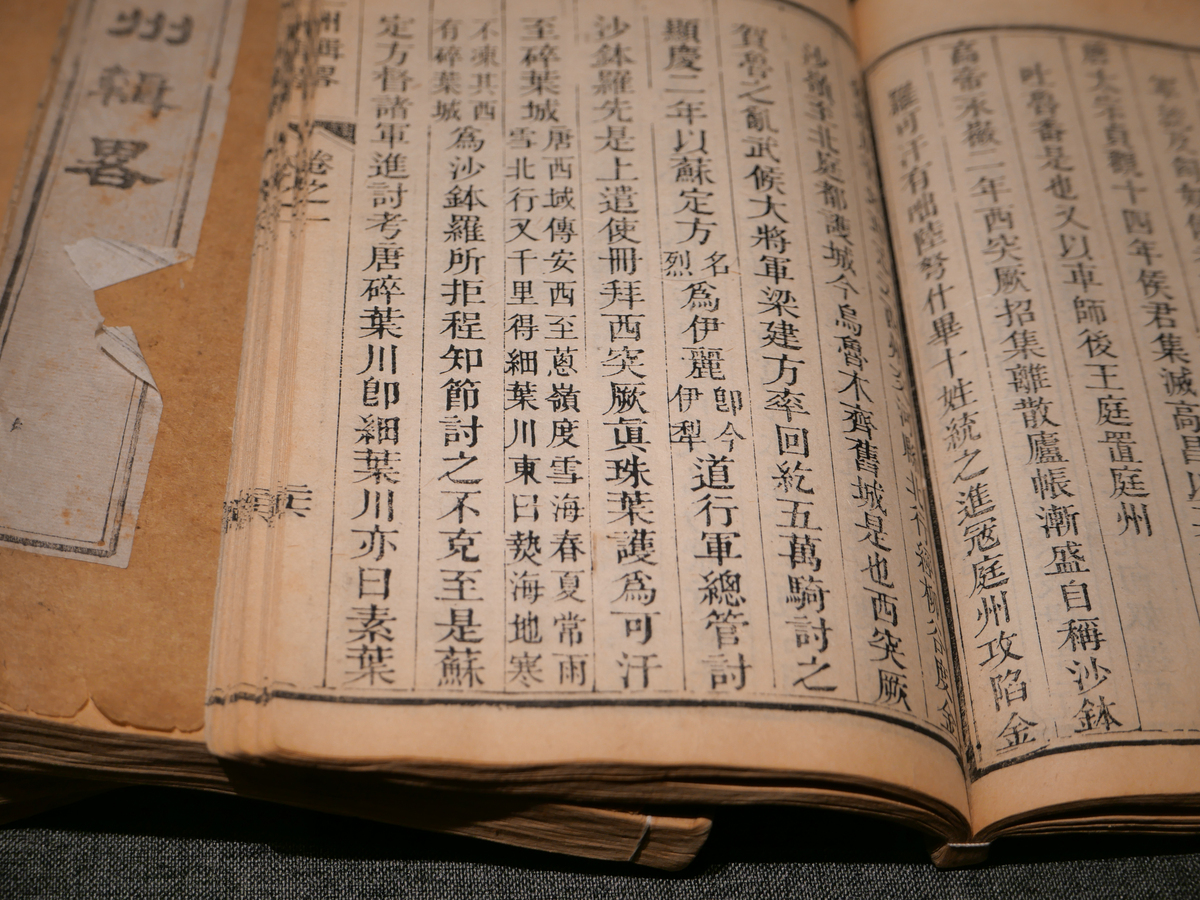 大宗貞觀十四年侯君集滅高昌
吐魯番是也又以車師後王庭置庭州
高帝永徽二年西突厥招集離散廬帳漸盛自稱沙鉢
羅可汗有咄陸努什畢十姓統之進寇庭州攻陷金
沙嶺至北庭都護城今烏魯木齊舊城是也西突厥
賀魯之亂武候大將軍梁建方率回紇五萬騎討之
顯慶二年以蘇定方名烈為伊麗即今伊犁道行軍總管討
沙鉢羅先是上遣使冊拜西突厥眞珠葉護為可汗
至碎葉城唐西域傳安西至蔥嶺度雪海春夏常雨雪北行又千里得細葉川東曰𤍠海地寒
不凍其西有碎葉城為沙鉢羅所拒程知節討之不克至是蘇
定方督諸軍進討考唐碎葉川即細葉川亦曰素葉
州輯畧
卷之二
州輯畧